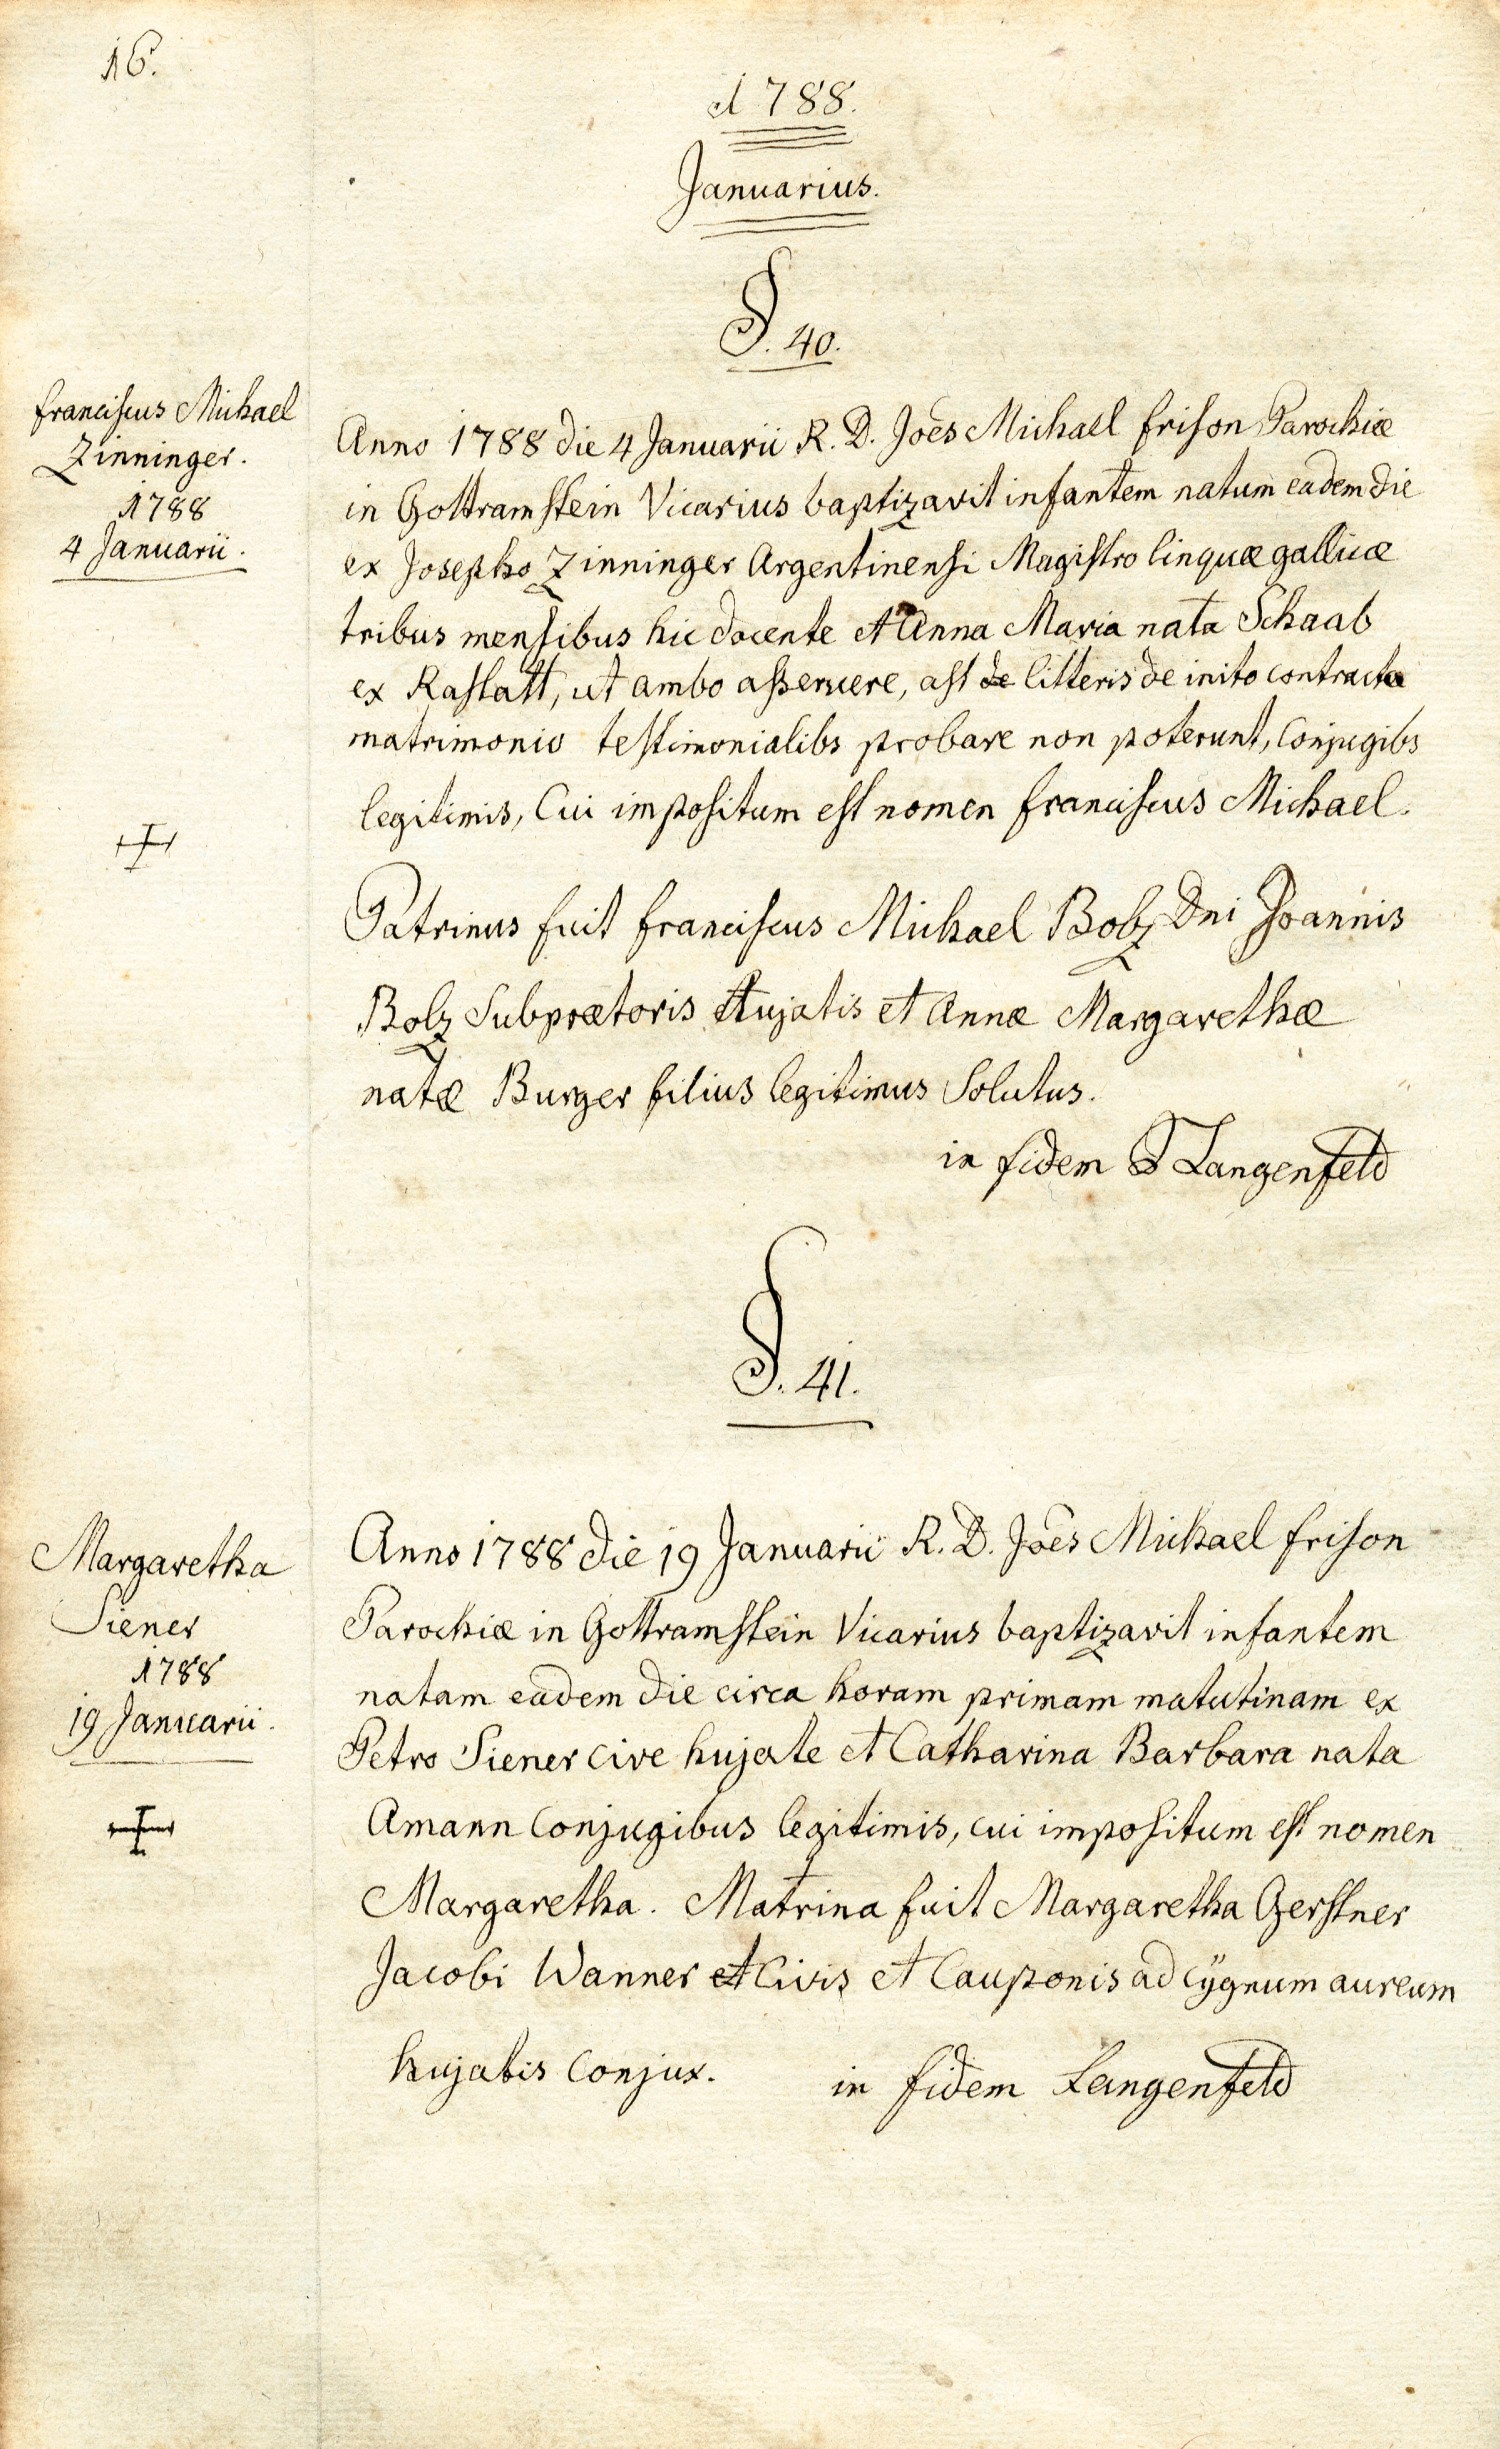 16.
1788.
Januarius.
§. 40.
Franciscus Michael
Zinninger.
1788
4 Januarii.
Anno 1788 die 4 Januarii R. D. Joês Michael Frison Parochiæ
in Gottramstein Vicarius baptizavit infantem natum eadem die
ex Josepho Zinninger Argentinensi Magistro linquæ gallicæ
tribus mensibus hic docente et Anna Maria nata Schaab
ex Rastatt, ut ambo asseruere, ast de litteris de inito contracto
matrimonio testimonialibs probare non poterunt, Conjugibs
legitimis, Cui impositum est nomen Franciscus Michael.
Patrinus fuit Franciscus Michael Bolz Dni Joannis
Bolz Subprætoris Hujatis et Annæ Margarethæ
natæ Burger filius legitimus Solutus.
in fidem Langenfeld
§. 41.
Margaretha
Siener
1788
19 Januarii.
Anno 1788 die 19 Januarii R. D. Joês Michael Frison
Parochiæ in Gottramstein Vicarius baptizavit infantem
natam eadem die circa horam primam matutinam ex
Petro Siener Cive hujate et Catharina Barbara nata
Amann Conjugibus legitimis, cui impositum est nomen
Margaretha. Matrina fuit Margaretha Gerstner
Jacobi Wanner et Civis et Cauponis ad cÿgnum aureum
hujatis Conjux. in fidem Langenfeld